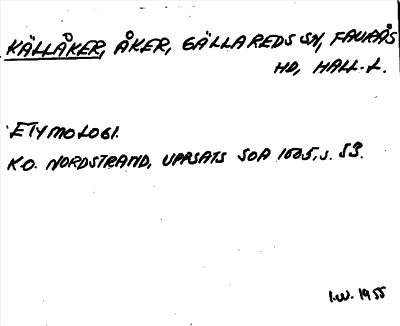 KÄLLÅKER, ÅKER, GÄLLAREDS SN, FAURÅS
HD, HALL. L.
ETYMOLOGI.
K.O. NORDSTRAND, UPPSATS SOA 1005, S. 53.
I.W. 1955